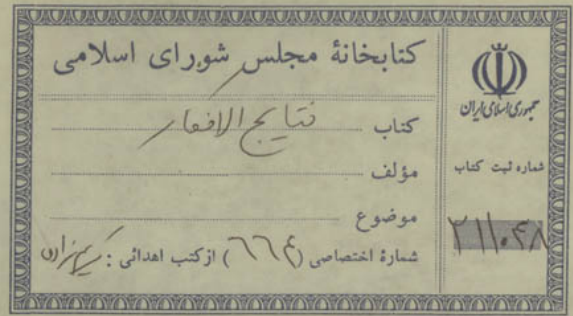 کتابخانهٔ مجلس شورای اسلامی
کتاب نتایج الافکار
مؤلف
موضوع
شمارهٔ اختصاصی (۶۶۴) از کتب اهدائی :
جمهوری اسلامی ایران
شماره ثبت کتاب
۳۱۱۰۴۸